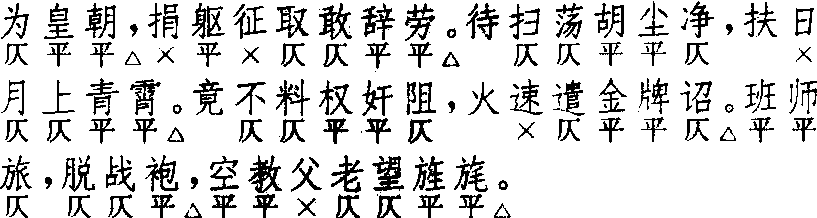 为皇朝,捐躯征取敢辞劳。待扫荡胡尘净,扶日
仄平平△×平×仄仄平平△ 仄仄平平仄 ×
月上青霄。竟不料权奸阻,火速遣金牌诏。班师
仄仄平平△ 仄仄平平仄 ×仄平平仄△平平
旅,脱战袍,空教父老望旌旄。
仄 仄仄平△平平×仄仄平平△